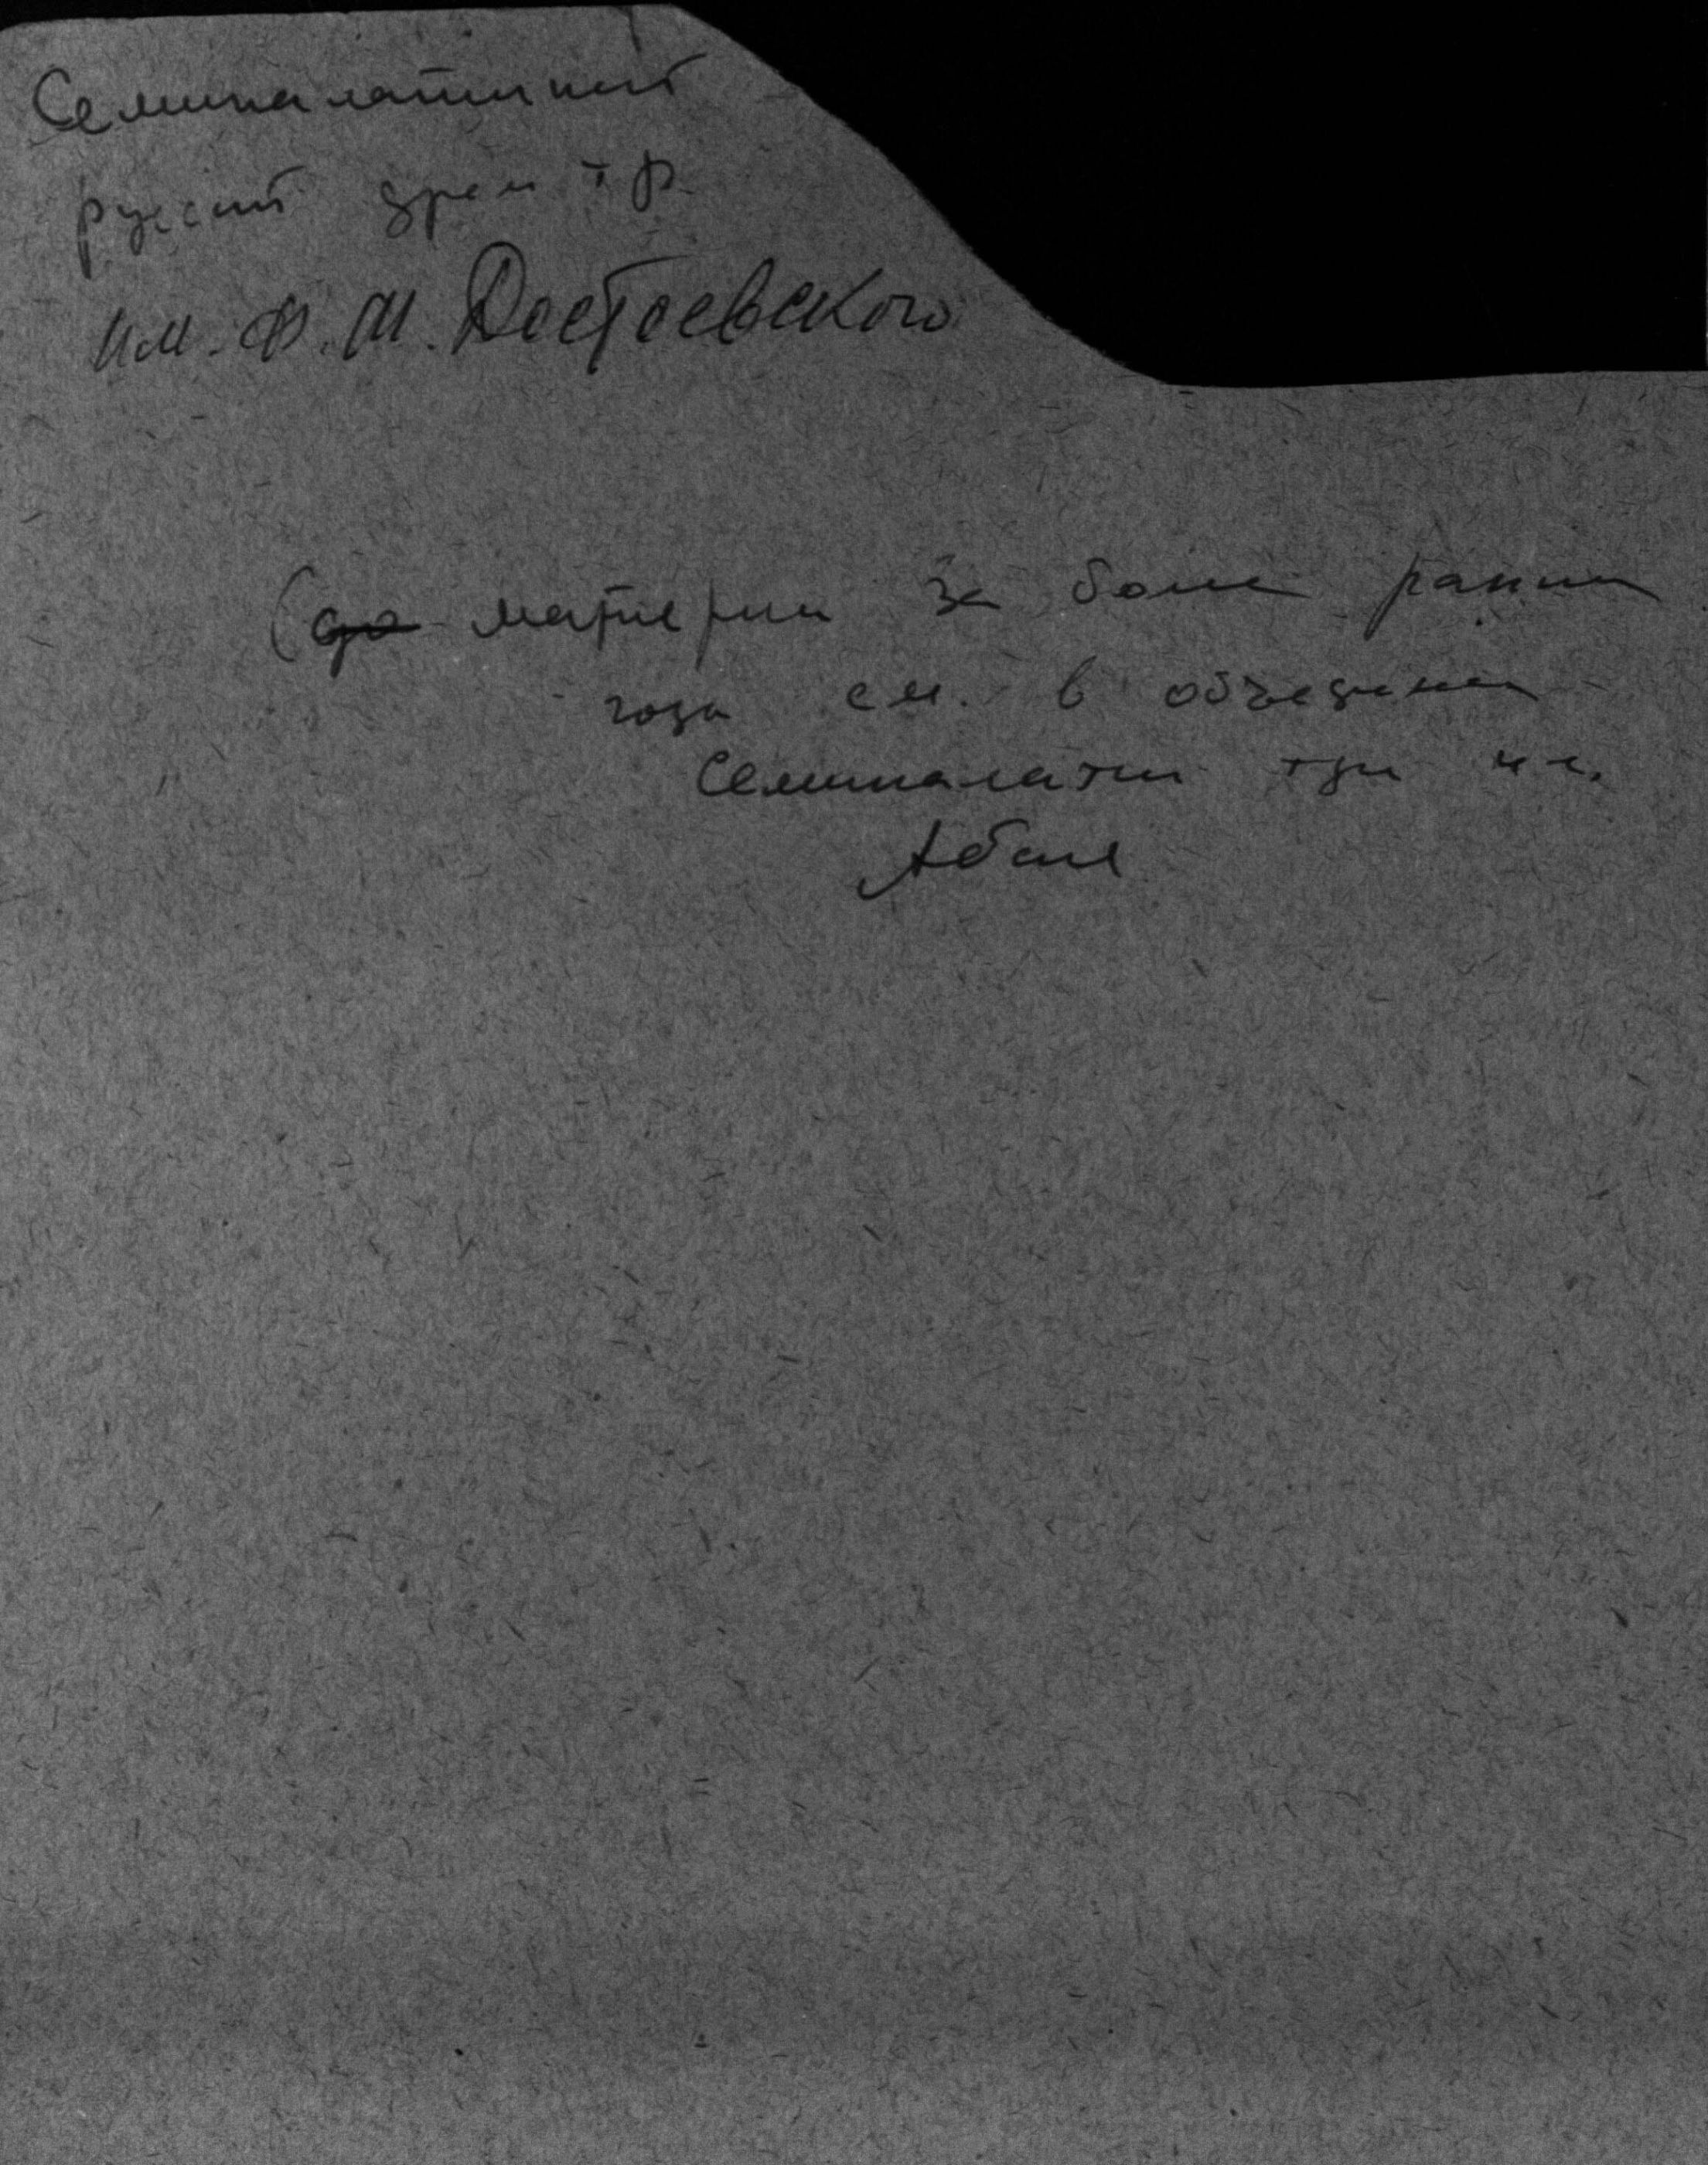 Семипалатинский
русский драм т-р
им. Ф. М. Достоевского
(до материалы за более ранние
года см. в объединен
Семипалатин т-ре им.
Абая